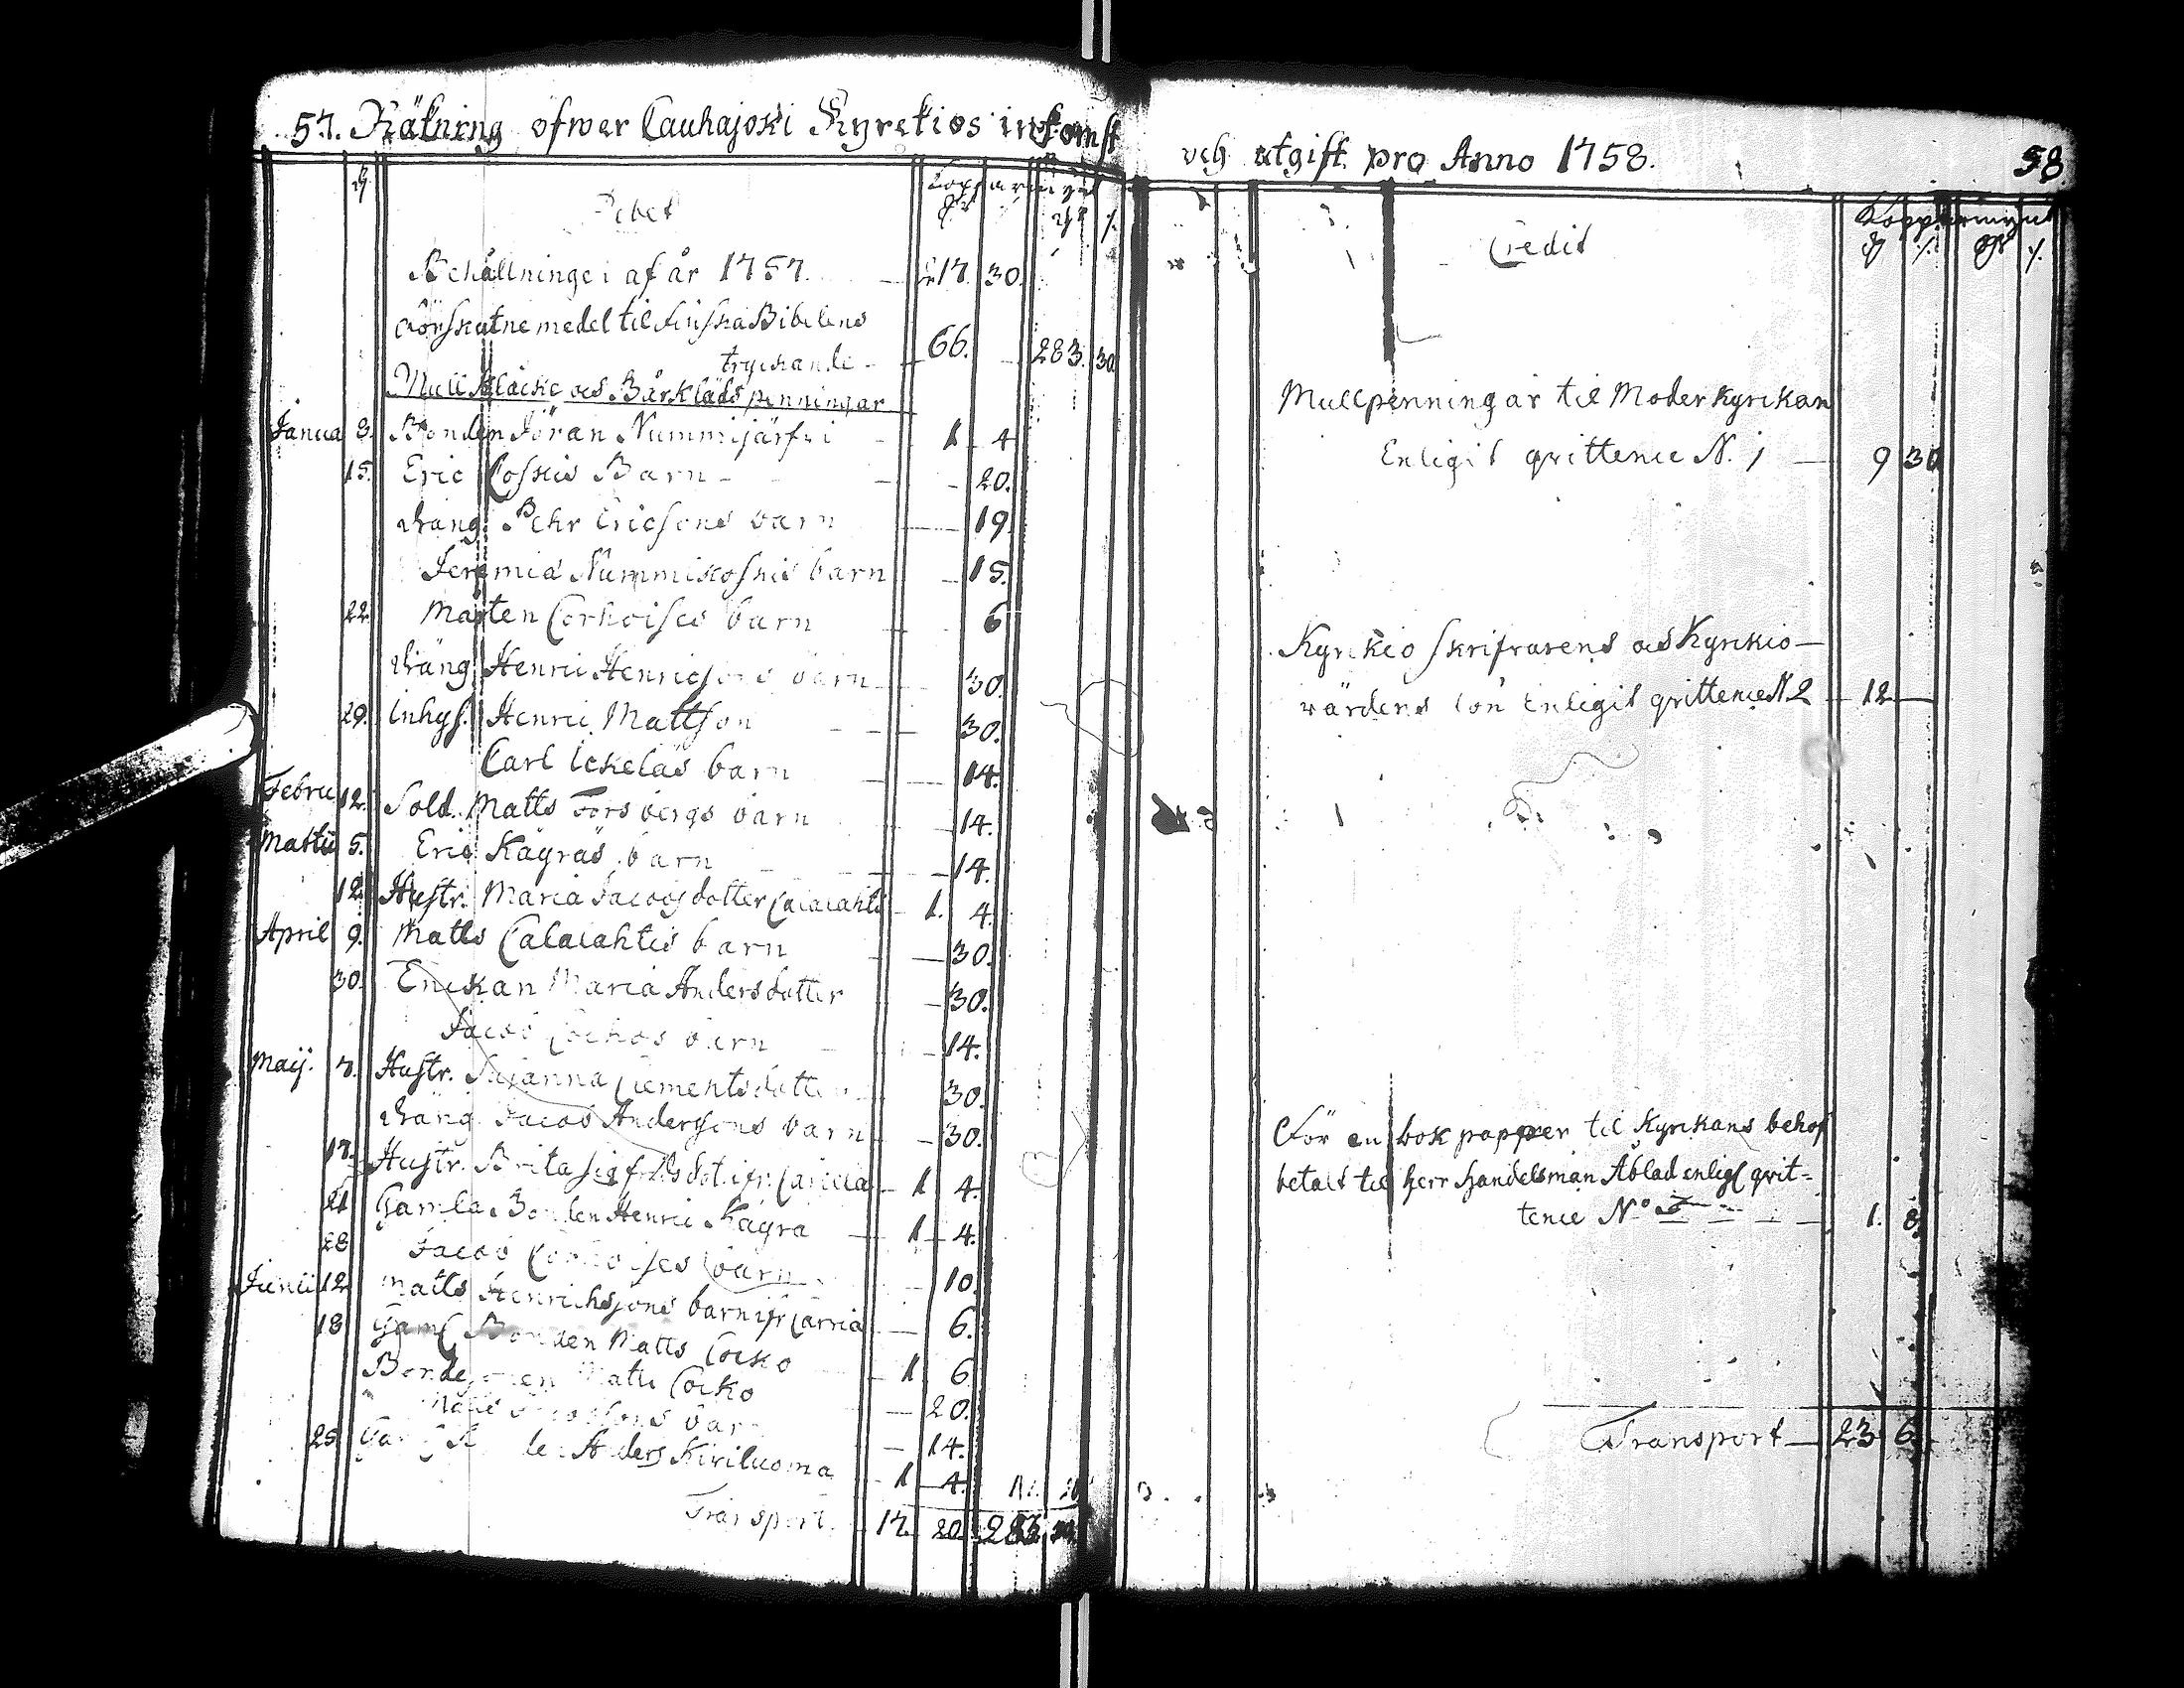 57. Räkning öfwer Cauhajoki Kyrckios inkomst
Debet
Behållningen af år 1757. 217. 30.
Förskutne medel til Finska Bibelens
tryckande 66. 283. 30
Mull Klåcke och Bårklädspenningar
Janua 8. Bonden Jöran Nummijärfwi 1 4
15. Eric Coskis Barn 20.
dräng. Pehr Ericsons barn 19.
Jeremia Nummikoskis barn 15.
22. Mårten Corhoises barn 6
dräng Henric Henricsons barn 30.
29. Inhys. Henric Mattson 30.
Carl Ickeläs barn 14.
Febru 12. Sold. Matts Forsbergs barn 14.
Martii 5. Eric Kagräs barn 14.
12. Hustr. Maria Jacobsdotter Calalahti 1. 4.
April 9. Matts Calalahtis barn 30.
30. Enckan Maria Andersdotter 30.
Jacob barn 14.
Maij. 7. Hustr. Susanna Clementsdotter 30.
dräng Jacob Andersons barn 30.
17. Hustr. Brita Sigfridsdot. ifr. 1 4.
21 Gamla Bonden Henric Kagra 1 4.
28 Jacob Corhoises barn 10.
Junii 12 Matts Henrichsons barn ifr 6.
18 Gaml Bonden Matts Cocko 1 6
Matts Cocko 20.
barn 14.
25 Anders Kiviluoma 1 4.
Transport. 17. 20. 283. 30.
och utgift pro Anno 1758. 58
Kopparmynt
Credit
Mullpenningar til Moderkyrckan
Enligit qvittence N. 1 9 30
Kyrckioskrifvarens och Kyrckio-
värdens lön Enligit qvittence N 2 12
För en bok papper til Kyrckans behof
betalt til herr handelsman Åblad enligt qvit=
tence No 1. 8.
Transport 23 6.